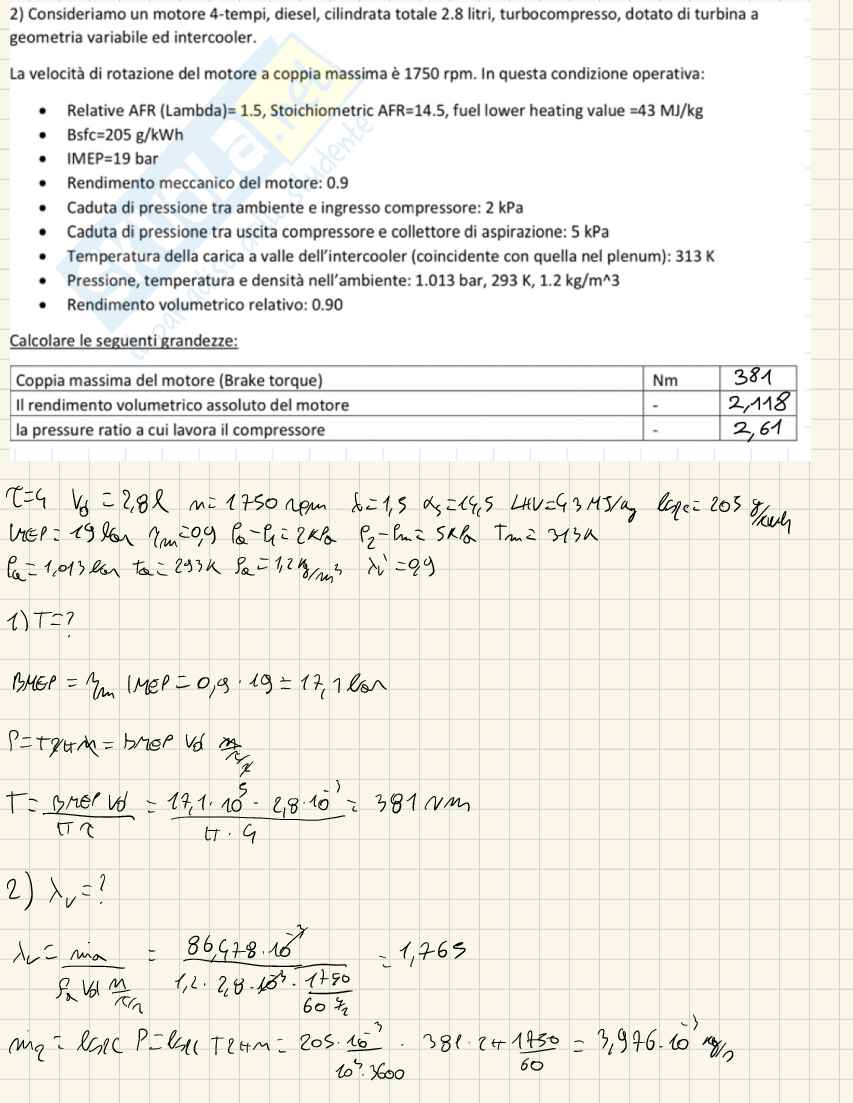 2) Consideriamo un motore 4-tempi, diesel, cilindrata totale 2.8 litri, turbocompresso, dotato di turbina a
geometria variabile ed intercooler.
La velocità di rotazione del motore a coppia massima è 1750 rpm. In questa condizione operativa:
• Relative AFR (Lambda)= 1.5, Stoichiometric AFR=14.5, fuel lower heating value =43 MJ/kg
• Bsfc=205 g/kWh
• IMEP=19 bar
• Rendimento meccanico del motore: 0.9
• Caduta di pressione tra ambiente e ingresso compressore: 2 kPa
• Caduta di pressione tra uscita compressore e collettore di aspirazione: 5 kPa
• Temperatura della carica a valle dell'intercooler (coincidente con quella nel plenum): 313 K
• Pressione, temperatura e densità nell'ambiente: 1.013 bar, 293 K, 1.2 kg/m^3
• Rendimento volumetrico relativo: 0.90
Calcolare le seguenti grandezze:
Coppia massima del motore (Brake torque) Nm 381
Il rendimento volumetrico assoluto del motore - 2,118
la pressure ratio a cui lavora il compressore - 2,61
τ=4 Vd = 2,8 l n= 1750 rpm δ=1,5 αs=14,5 LHV=43 MJ/kg bsfc= 205 g/kWh
IMEP= 19 bar ηm=0,9 Pa-P1=2kPa P2-Pm= 5kPa Tm= 313K
Pa=1,013 bar ta= 293K ρa=1,2 kg/m³ λv'=0,9
1) T=?
BMEP = ηm IMEP = 0,9 · 19 = 17,1 bar
P=T2πn = BMEP Vd n/τ/2
T= BMEP Vd / π τ = 17,1·10⁵ · 2,8·10⁻³ / π · 4 = 381 Nm
2) λv=?
λv= ṁa / ρa Vd n/τ/2 = 86,478·10⁻³ / 1,2 · 2,8·10⁻³ · 1750/60·2 = 1,765
= bsfc P= bsfc T2πn = 205·10⁻³ / 10³·3600 · 381·2π 1750/60 = 3,976·10⁻³ kg/s